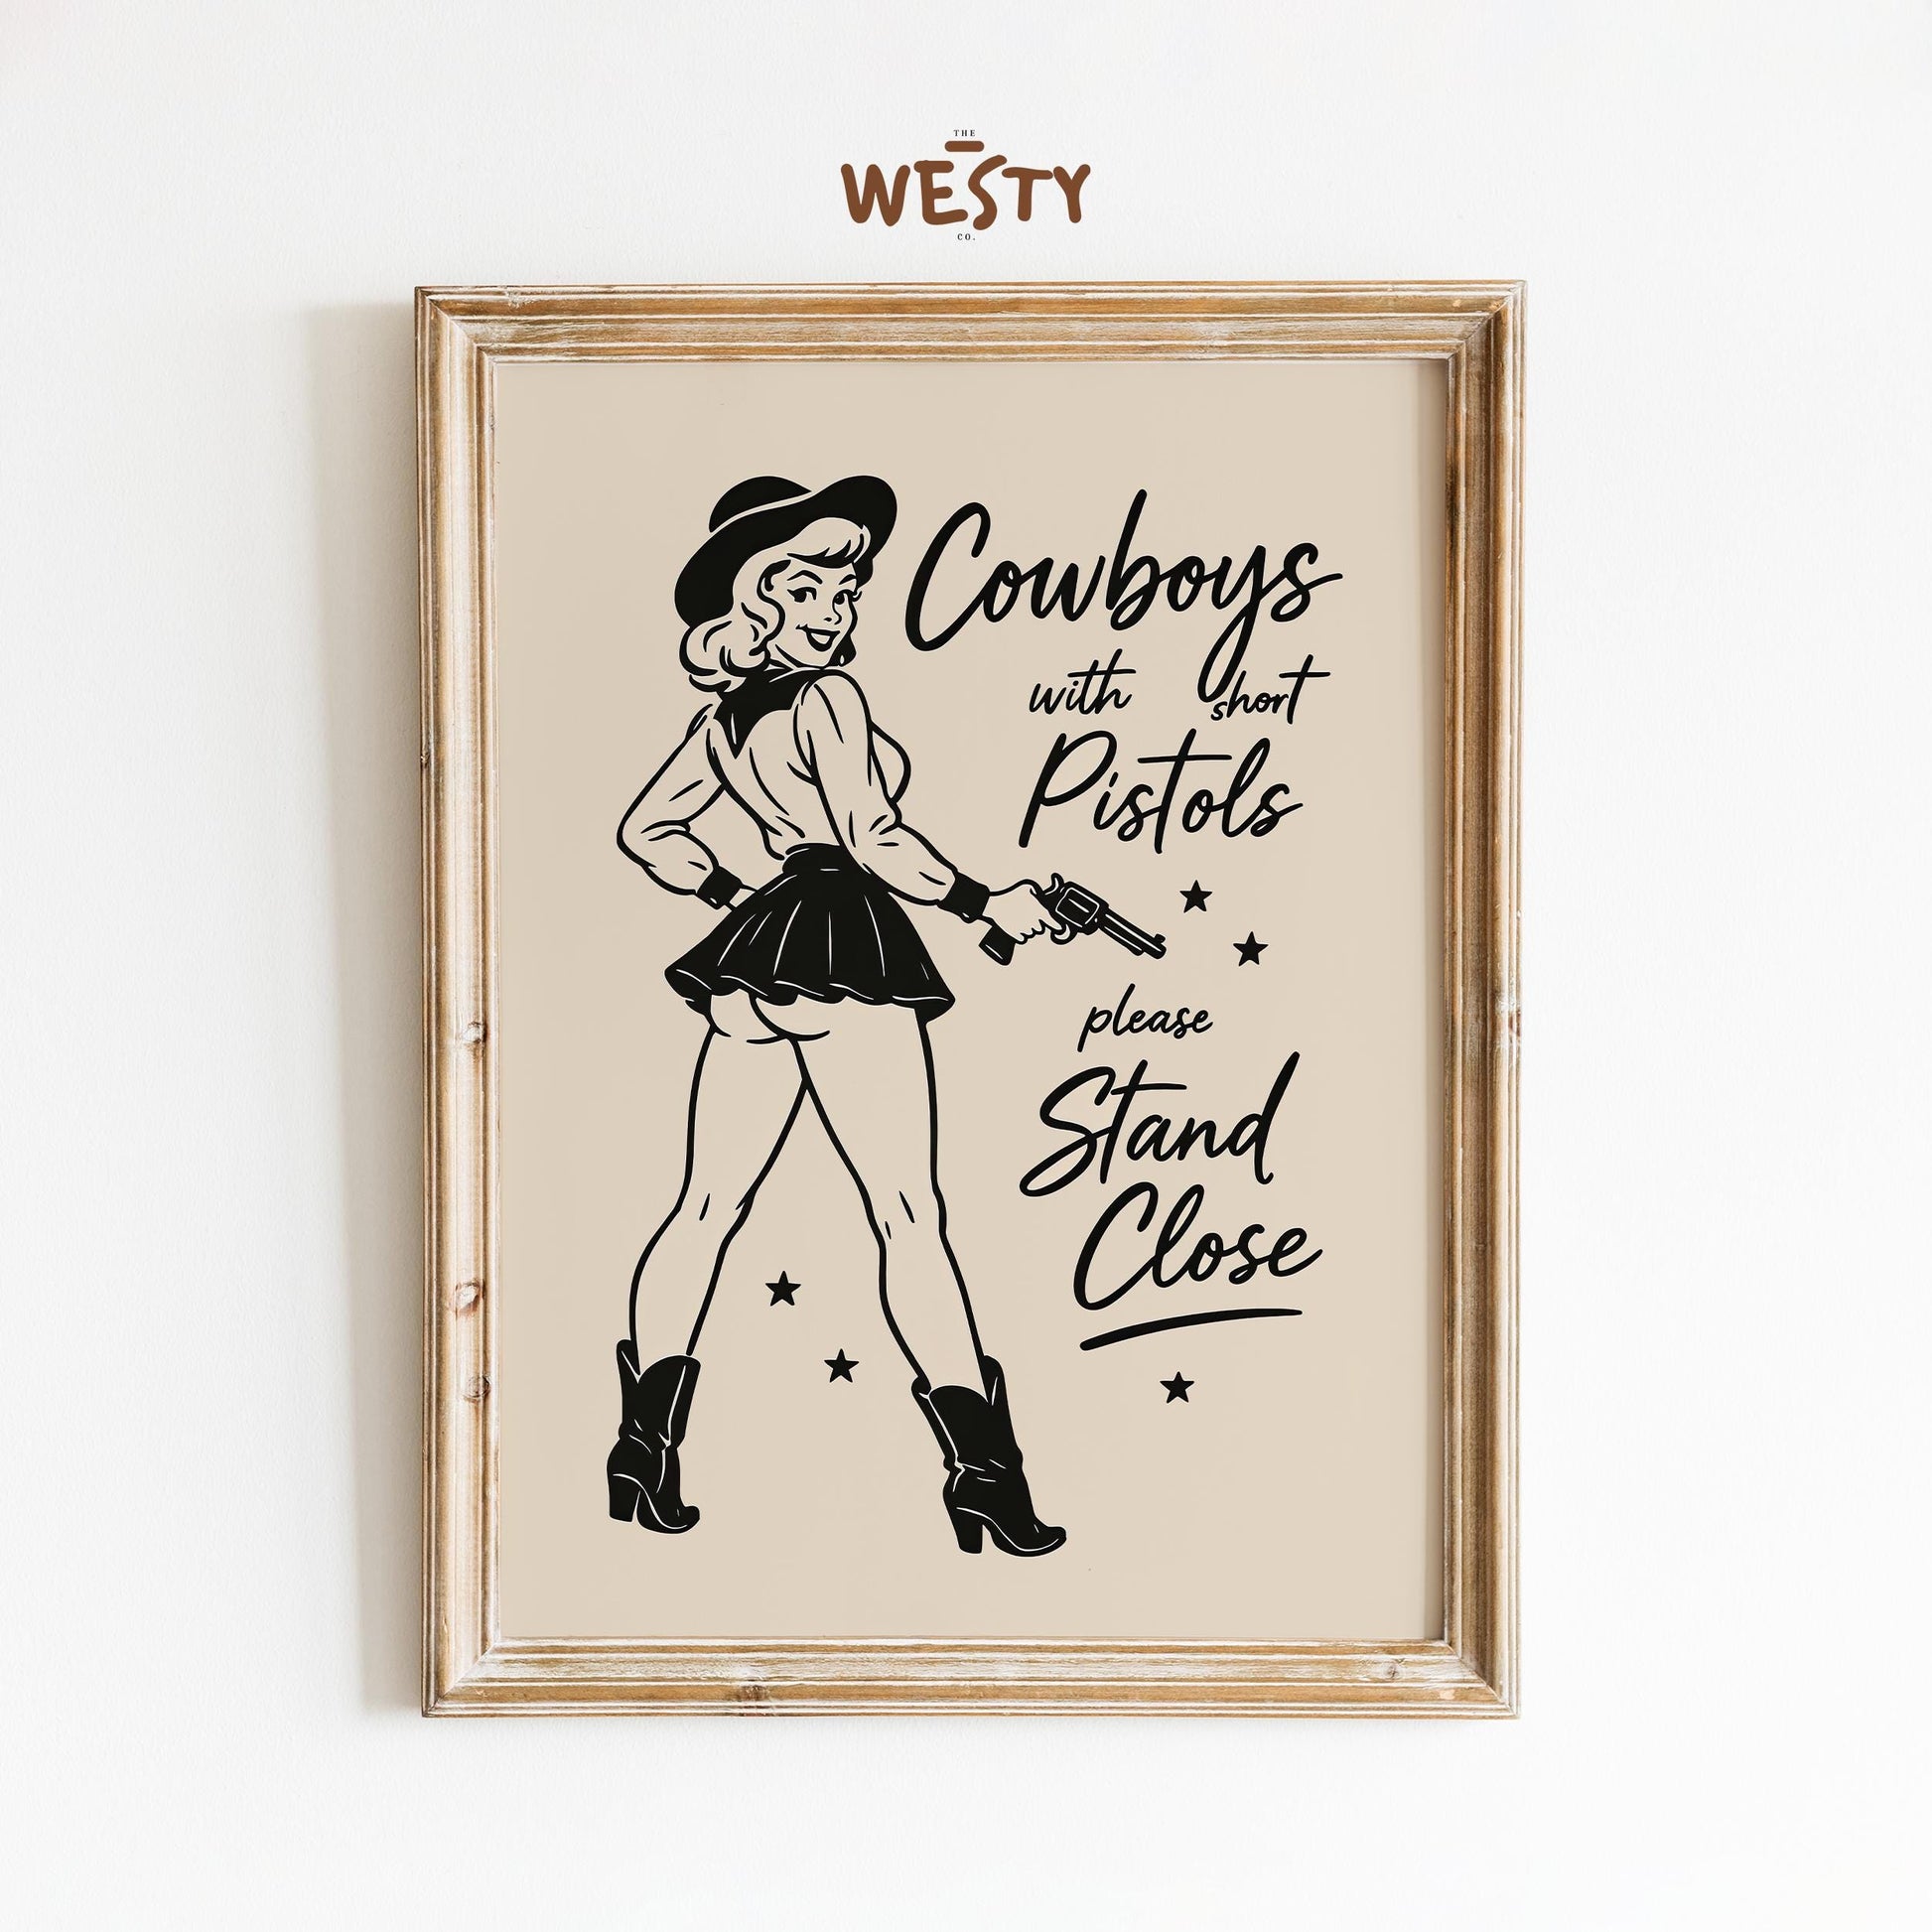 THE
WESTY
CO.
Cowboys
with short
Pistols
please
Stand
Close